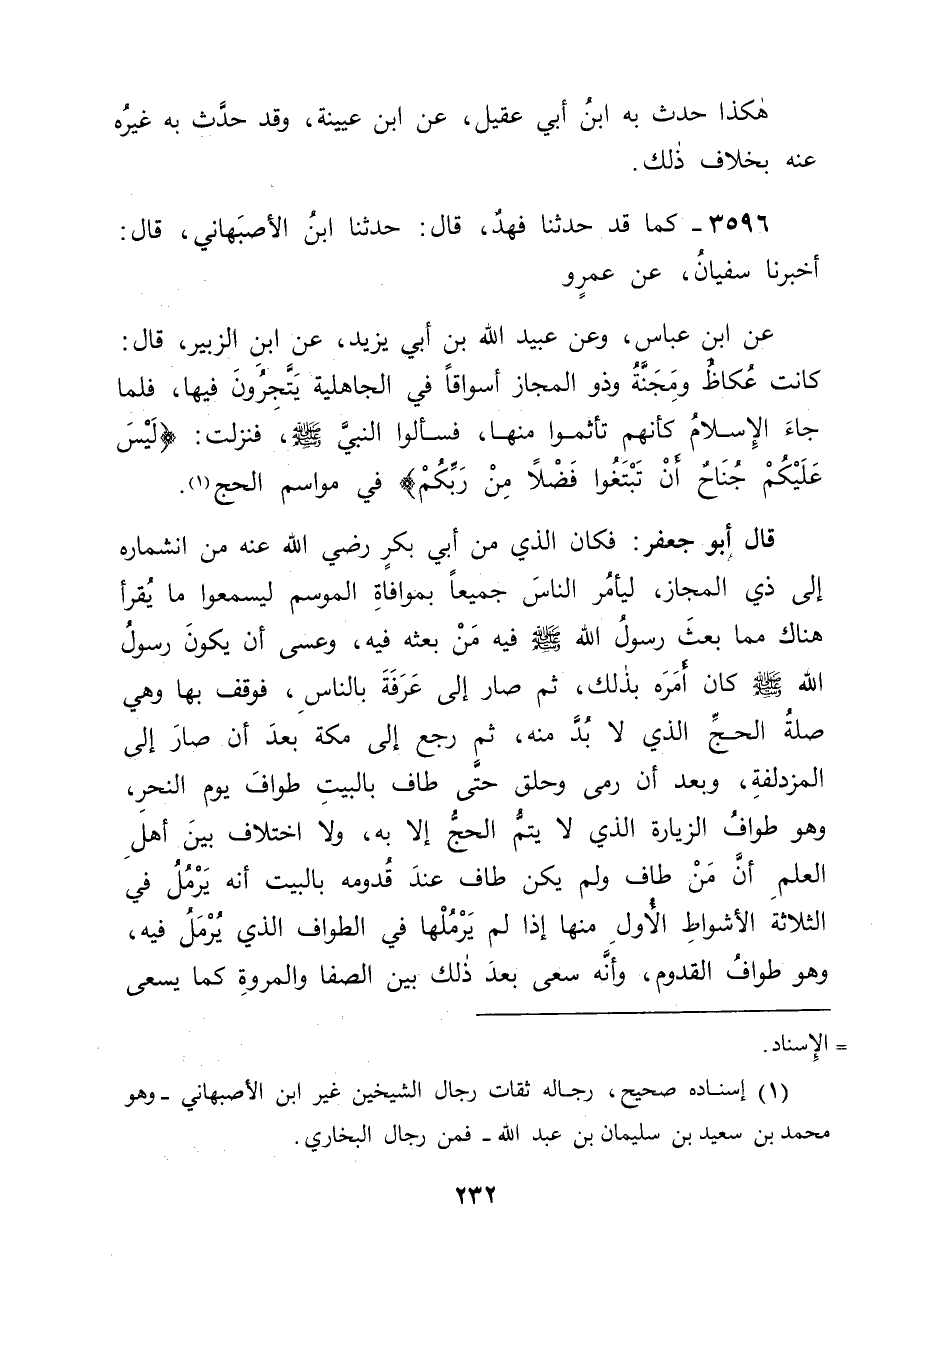 هٰكذا حدث به ابنُ أبي عقيل، عن ابن عيينة، وقد حدَّث به غيرُه
عنه بخلاف ذٰلك.
٣٥٩٦ ـ كما قد حدثنا فهدٌ، قال: حدثنا ابنُ الأصبَهاني، قال:
أخبرنا سفيانُ، عن عمرٍو
عن ابنِ عباس، وعن عبيد الله بن أبي يزيد، عن ابنِ الزبير، قال:
كانت عُكاظُ ومَجَنَّةُ وذو المجاز أسواقاً في الجاهلية يَتَّجِرُونَ فيها، فلما
جاءَ الإِسلامُ كأنهم تأثموا منها، فسألوا النبيَّ ﷺ، فنزلت: ﴿لَيْسَ
عَلَيْكُمْ جُنَاحٌ أَنْ تَبْتَغُوا فَضْلًا مِنْ رَبِّكُمْ﴾ في مواسم الحج(١).
قال أبو جعفر: فكان الذي من أبي بكرٍ رضي الله عنه من انشماره
إلى ذي المجاز، ليأمُر الناسَ جميعاً بموافاةِ الموسم ليسمعوا ما يُقرأ
هناك مما بعثَ رسولُ الله ﷺ فيه مَنْ بعثه فيه، وعسى أن يكونَ رسولُ
الله ﷺ كان أَمَرَه بذٰلك، ثم صار إلى عَرَفَةَ بالناسِ، فوقف بها وهي
صلةُ الحجِّ الذي لا بُدَّ منه، ثم رجع إلى مكة بعدَ أن صارَ إلى
المزدلفةِ، وبعد أن رمى وحلق حتَّى طاف بالبيتِ طوافَ يوم النحرِ،
وهو طوافُ الزيارة الذي لا يتمُّ الحجُّ إلا به، ولا اختلاف بينَ أهلِ
العلمِ أنَّ مَنْ طاف ولم يكن طاف عندَ قُدومه بالبيت أنه يَرْمُلُ في
الثلاثة الأشواطِ الأُولِ منها إذا لم يَرْمُلْها في الطواف الذي يُرْمَلُ فيه،
وهو طوافُ القدوم، وأنَّه سعى بعدَ ذٰلك بين الصفا والمروةِ كما يسعى
= الإِسناد.
(١) إسناده صحيح، رجاله ثقات رجال الشيخين غير ابن الأصبهاني ـ وهو
محمد بن سعيد بن سليمان بن عبد الله ـ فمن رجال البخاري.
٢٣٢